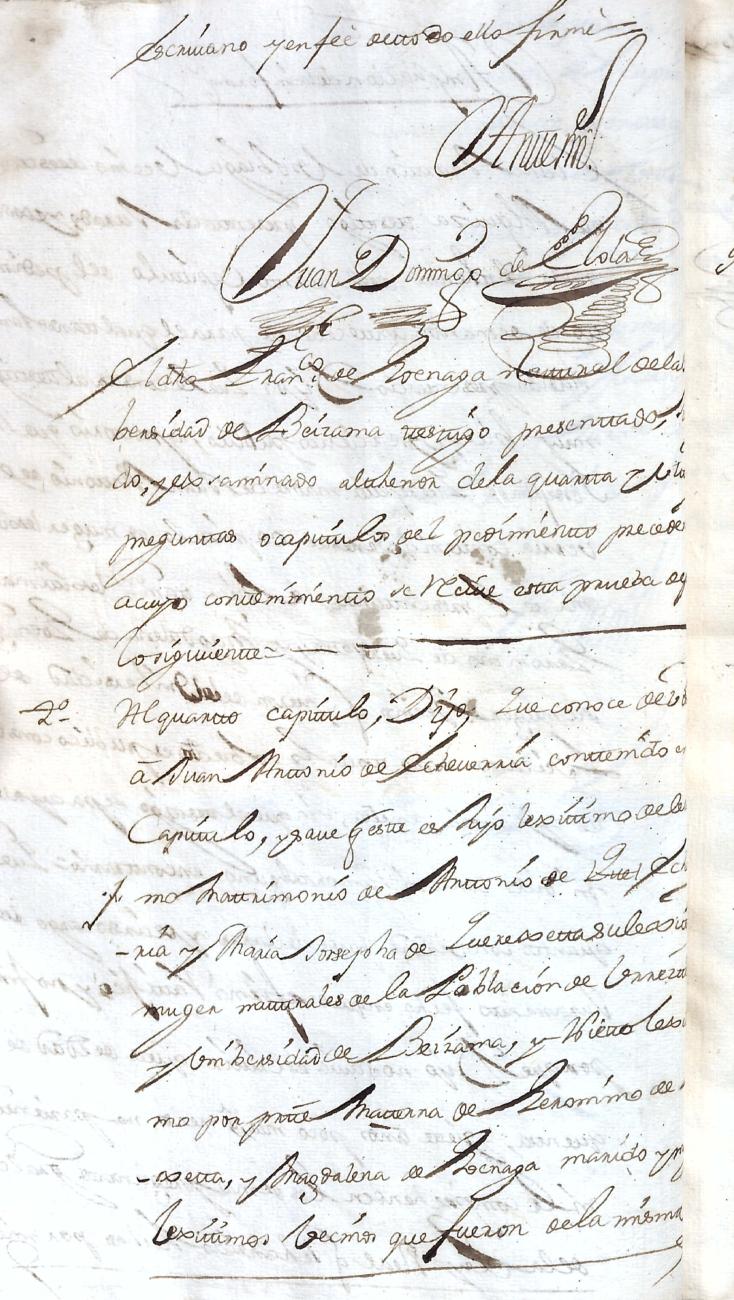 escriuano y en feè de todo ello firmè=
Antemi
Juan Domingo de
El dho Fran.co de Loenaga natural de la
bersidad de Beizama testigo presenttado,
do, y esxaminado al thenor de la quartta y
preguntas o capitulos del pedimiento preceden
a cuyo contenimiento se Recive esta prueba
lo siguiente
4º Al quartto capittulo, Dijo, Que conoce de
â Juan Anttonio de Echeverria conttenido
Capittulo, y saue q este es hijo lexittimo de le
mo mattrimonio de Anttonio de Ech
-ria y Maria Josepha de Querexetta su lexi
muger natturales de la Poblacion de Urrezti
y Unibersidad de Beizama, y Nietto lexi
mo por prtte Matterna de Geronimo de
-xetta, y Magdalena de Loenaga marido y mu
lexittimos becinos que fueron de la misma